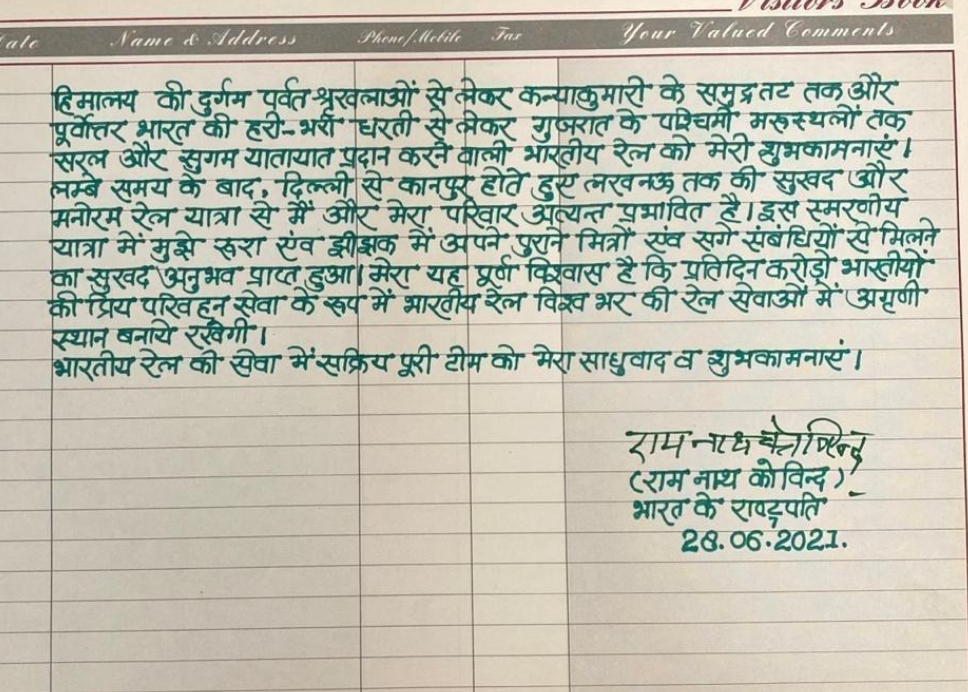 Visitors Book
Date Name & Address Phone/Mobile Fax Your Valued Comments
हिमालय की दुर्गम पर्वत-श्रृखलाओं से लेकर कन्याकुमारी के समुद्र तट तक और
पूर्वोत्तर भारत की हरी-भरी धरती से लेकर गुजरात के पश्चिमी मरूस्थलों तक
सरल और सुगम यातायात प्रदान करने वाली भारतीय रेल को मेरी शुभकामनाएं।
लम्बे समय के बाद, दिल्ली से कानपुर होते हुए लखनऊ तक की सुखद और
मनोरम रेल यात्रा से मैं और मेरा परिवार अत्यन्त प्रभावित है। इस स्मरणीय
यात्रा में मुझे रूरा एंव झींझक में अपने पुराने मित्रों एंव सगे संबंधियों से मिलने
का सुखद अनुभव प्राप्त हुआ। मेरा यह पूर्ण विश्वास है कि प्रतिदिन करोड़ो भारतीयों
की प्रिय परिवहन सेवा के रूप में भारतीय रेल विश्व भर की रेल सेवाओं में अग्रणी
स्थान बनाये रखेगी।
भारतीय रेल की सेवा में सक्रिय पूरी टीम को मेरा साधुवाद व शुभकामनाएं।
राम नाथ कोविन्द
(राम नाथ कोविन्द)
भारत के राष्ट्रपति
28.06.2021.